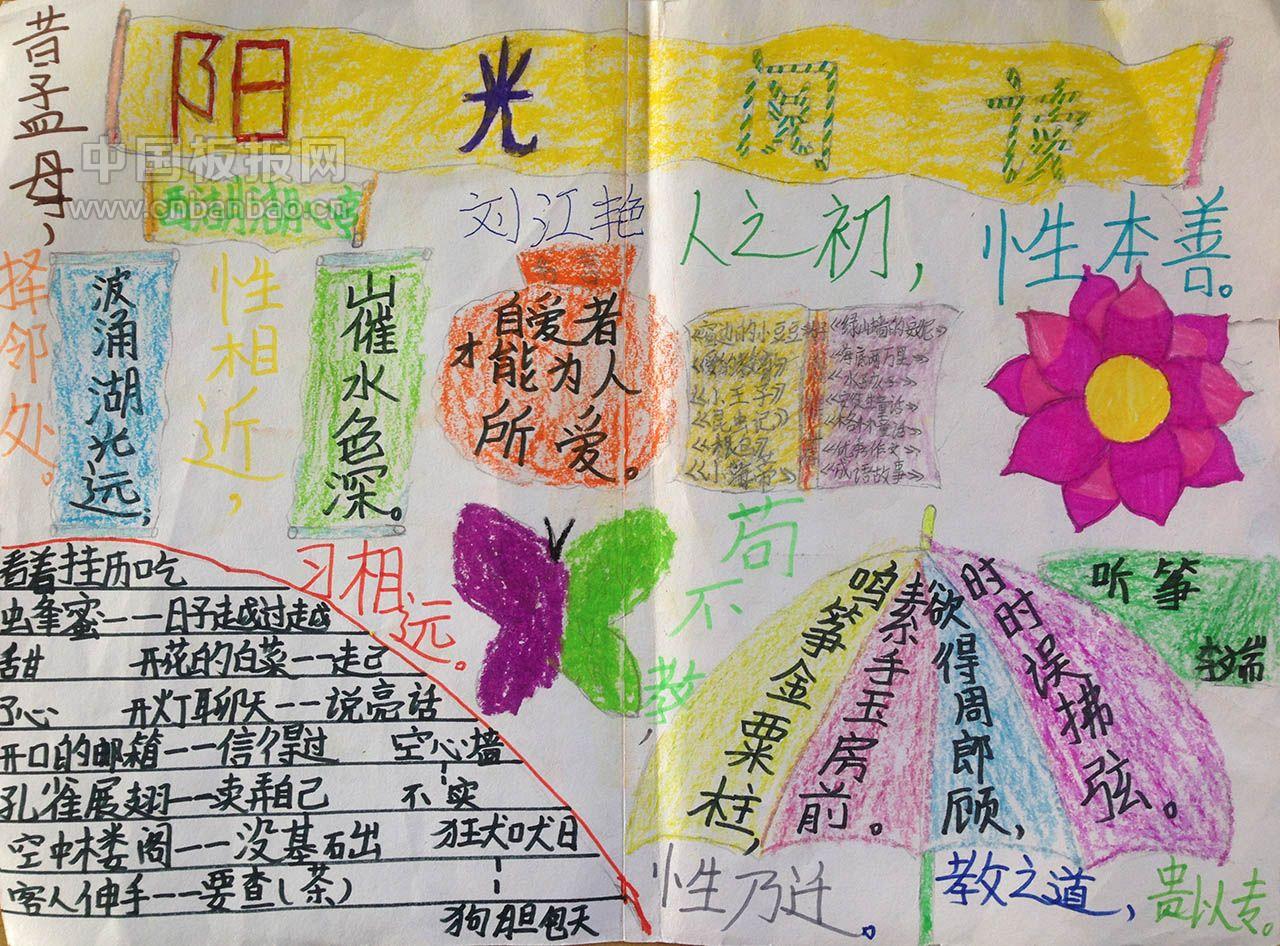 阳光阅读
中国板报网
www.cnbanbao.cn
西湖湖心亭
刘江艳
人之初，
性本善。
性相近，
习相远。
苟不教，
性乃迁。
教之道，
贵以专。
昔孟母，
择邻处。
波涌湖光远，
山催水色深。
自爱者
才能为人
所爱。
《窗边的小豆豆》
《爱的教育》
《小王子》
《昆虫记》
《绿山墙的安妮》
《海底两万里》
《水孩子》
《安徒生童话》
《格林童话》
《优秀作文》
《成语故事》
听筝
李端
鸣筝金粟柱，
素手玉房前。
欲得周郎顾，
时时误拂弦。
看着挂历吃
蜂蜜——日子越过越
甜 开花的白菜——走己
了心 开灯聊天——说亮话
开口的邮箱——信得过 空心墙
孔雀展翅——卖弄自己 不实
空中楼阁——没基石出 狂犬吠日
客人伸手——要查（茶）
狗胆包天